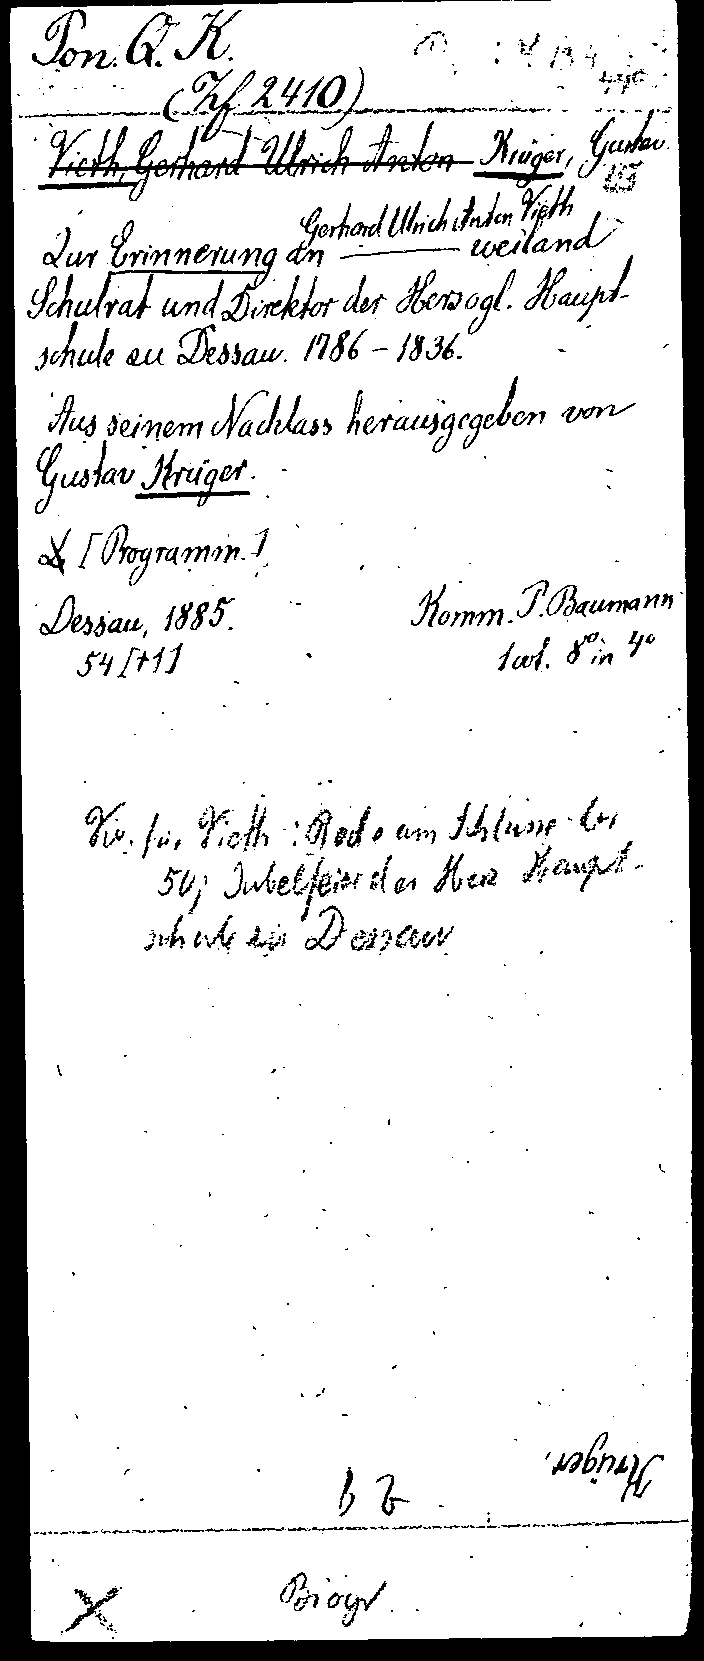 Pon. Q. K.
(Zf 2410)
Vieth, Gerhard Ulrich Anton Krüger, Gustav
Gerhard Ulrich Anton Vieth
Zur Erinnerung an ——— weiland
Schulrat und Direktor der Herzogl. Haupt-
schule zu Dessau. 1786 – 1836.
Aus seinem Nachlass herausgegeben von
Gustav Krüger.
[Programm.]
Dessau, 1885. Komm. P. Baumann
54 [+1] 8° in 4°
Vieth: Rede am Schlusse der
50j Jubelfeier der Herz Haupt-
schule zu Dessau
Krüger.
Biogr
X